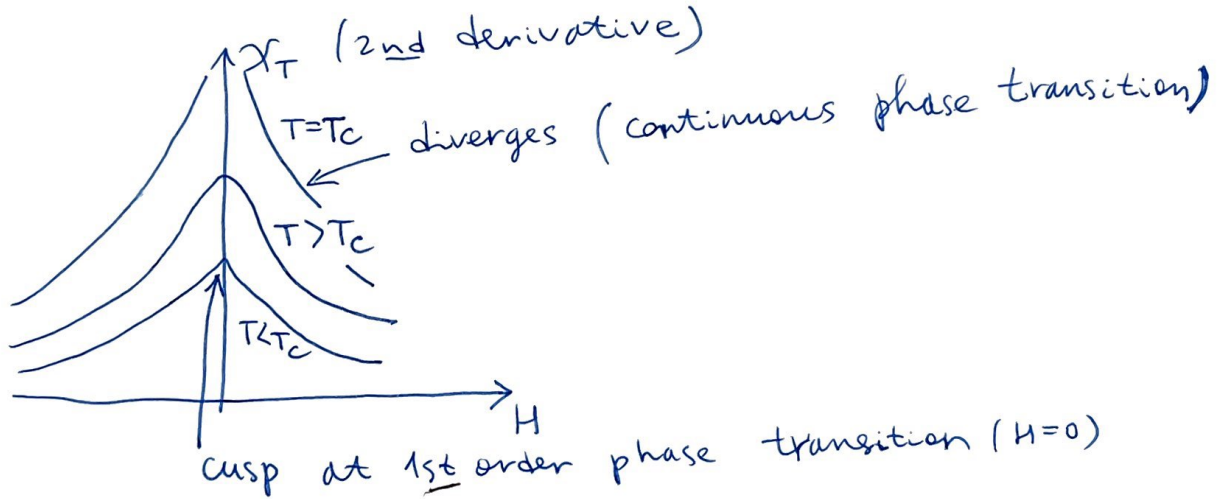 χ_T (2nd derivative)
T=Tc
diverges (continuous phase transition)
T>Tc
T<Tc
H
cusp at 1st order phase transition (H=0)